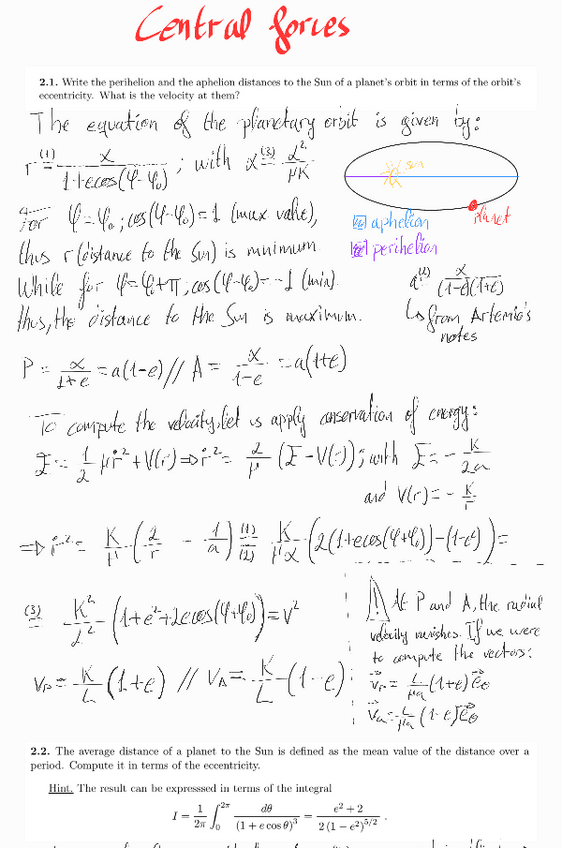 Central forces
2.1. Write the perihelion and the aphelion distances to the Sun of a planet's orbit in terms of the orbit's
eccentricity. What is the velocity at them?
The equation of the planetary orbit is given by:
r (1)= α / 1+e cos(φ-φ₀) ; with α (3)= L² / μK
sun
planet
aphelion
perihelion
For φ=φ₀; cos(φ-φ₀)=1 (max value),
thus r (distance to the Sun) is minimum
While for φ=φ₀+π; cos(φ-φ₀)=-1 (min).
thus, the distance to the Sun is maximum.
a (2)= α / (1-e)(1+e)
↳ from Artemio's
notes
P = α / 1+e = a(1-e) // A = α / 1-e = a(1+e)
To compute the velocity, let us apply conservation of energy:
E = 1/2 μṙ² + V(r) ⇒ ṙ² = 2/μ (E - V(r)); with E = - K / 2a
and V(r) = - K/r
⇒ ṙ² = K/μ (2/r - 1/a) (1)(2)= K/μα (2(1+e cos(φ+φ₀)) - (1-e²)) =
(3)= K²/L² (1+e²+2e cos(φ+φ₀)) = v²
v_P = K/L (1+e) // v_A = K/L (1-e)
At P and A, the radial
velocity vanishes. If we were
to compute the vectors:
v⃗_P = L/μα (1+e) e⃗_θ
v⃗_a = L/μα (1-e) e⃗_θ
2.2. The average distance of a planet to the Sun is defined as the mean value of the distance over a
period. Compute it in terms of the eccentricity.
Hint. The result can be expresssed in terms of the integral
I = 1/2π ∫₀^2π dθ / (1 + e cos θ)³ = e² + 2 / 2 (1 − e²)^5/2 .